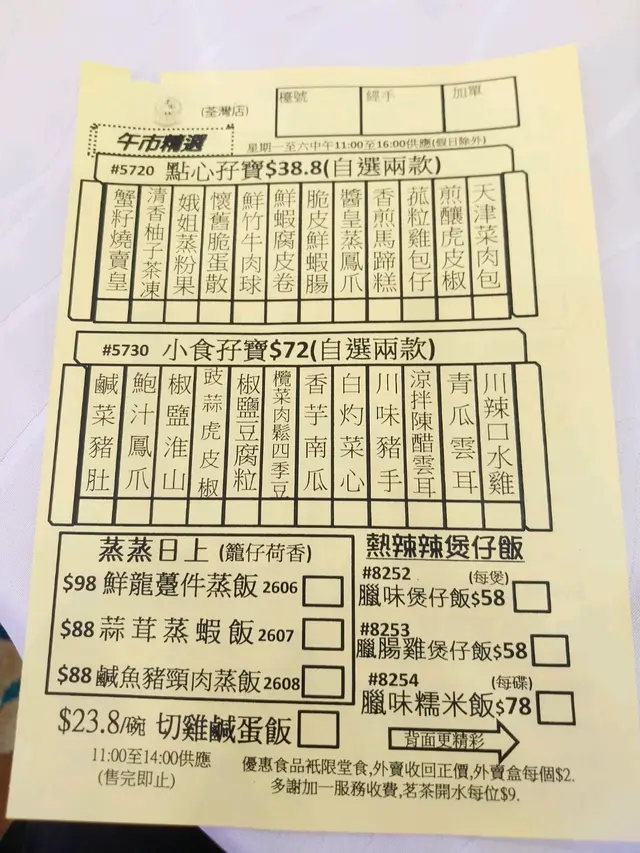 (荃灣店)
檯號 經手 加單
午市精選
星期一至六中午11:00至16:00供應(假日除外)
#5720 點心孖寶$38.8(自選兩款)
蟹籽燒賣皇
清香柚子茶凍
娥姐蒸粉果
懷舊脆蛋散
鮮竹牛肉球
鮮蝦腐皮卷
脆皮鮮蝦腸
醬皇蒸鳳爪
香煎馬蹄糕
菰粒雞包仔
煎釀虎皮椒
天津菜肉包
#5730 小食孖寶$72(自選兩款)
鹹菜豬肚
鮑汁鳳爪
椒鹽淮山
豉蒜虎皮椒
椒鹽豆腐粒
欖菜肉鬆四季豆
香芋南瓜
白灼菜心
川味豬手
涼拌陳醋雲耳
青瓜雲耳
川辣口水雞
蒸蒸日上 (籠仔荷香)
$98 鮮龍躉件蒸飯 2606
$88 蒜茸蒸蝦飯 2607
$88 鹹魚豬頸肉蒸飯 2608
$23.8/碗 切雞鹹蛋飯
11:00至14:00供應
(售完即止)
熱辣辣煲仔飯
#8252 (每煲)
臘味煲仔飯$58
#8253
臘腸雞煲仔飯$58
#8254 (每碟)
臘味糯米飯$78
背面更精彩
優惠食品衹限堂食,外賣收回正價,外賣盒每個$2.
多謝加一服務收費,茗茶開水每位$9.